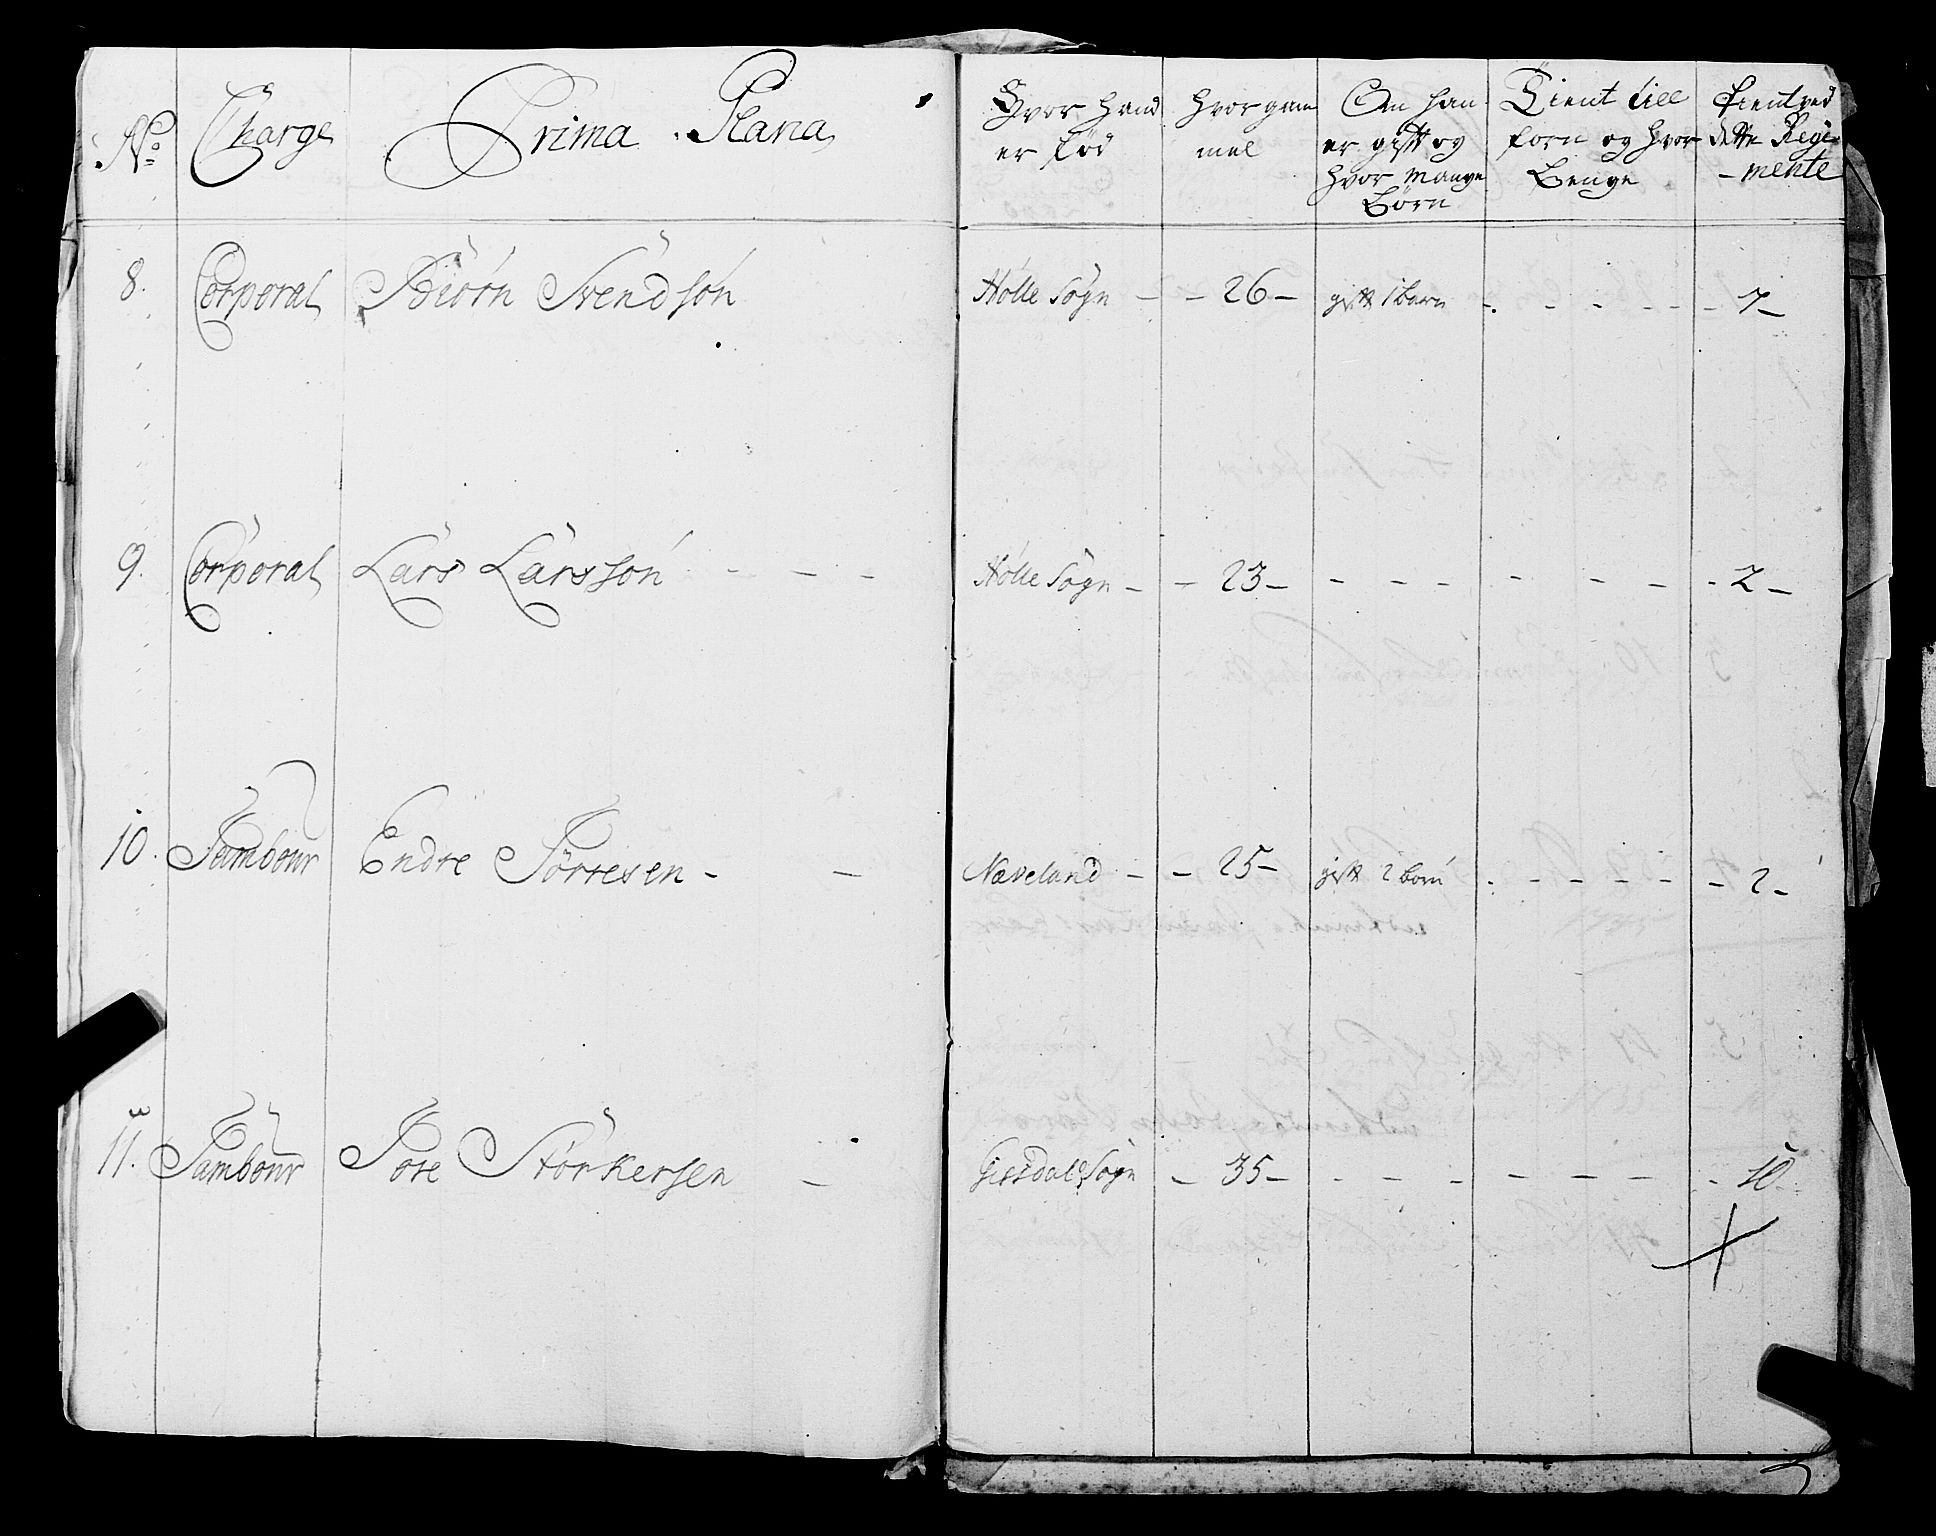 No Charge Prima Plana
Hvor hand er fød
Hvor gam mel
Om han er gift og hvor mange børn
Tient till forn og hvor lenge
tient ved dette Regi-mente
8. Corporal Biørn Svendsøn Hølle Sogn - - 26 - gift 1 barn - - - - - 7 -
9. Corporal Lars Larssøn - - - Hølle Sogn - - 23 - - - - - - - - 2 -
10. Tambour Endre Tørresen - - Næveland - - 25 - gift 2 børn - - - - - 2 -
11. Tambour Tore Størkersen - Giesdal Sogn - 35 - - - - - - - - 10